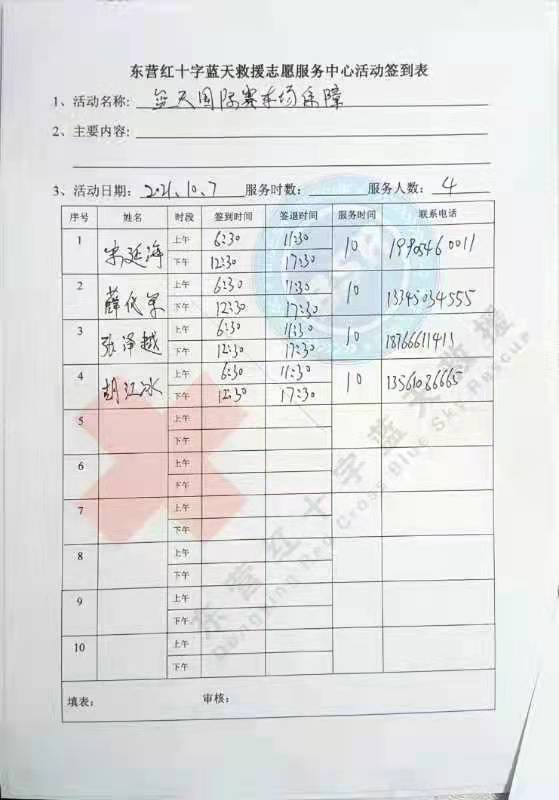 东营红十字蓝天救援志愿服务中心活动签到表
1、活动名称: 蓝天国际赛车场保障
2、主要内容:
3、活动日期: 2021.10.7 服务时数: 服务人数: 4
序号 姓名 时段 签到时间 签退时间 服务时间 联系电话
1 宋延海 上午 6:30 11:30 10 19905460011
下午 12:30 17:30
2 薛保军 上午 6:30 11:30 10 13345034555
下午 12:30 17:30
3 张泽越 上午 6:30 11:30 10 18766611411
下午 12:30 17:30
4 胡江冰 上午 6:30 11:30 10 13561086665
下午 12:30 17:30
5 上午
下午
6 上午
下午
7 上午
下午
8 上午
下午
9 上午
下午
10 上午
下午
填表: 审核:
东营红十字蓝天救援
Dongying Red Cross Blue Sky Rescue